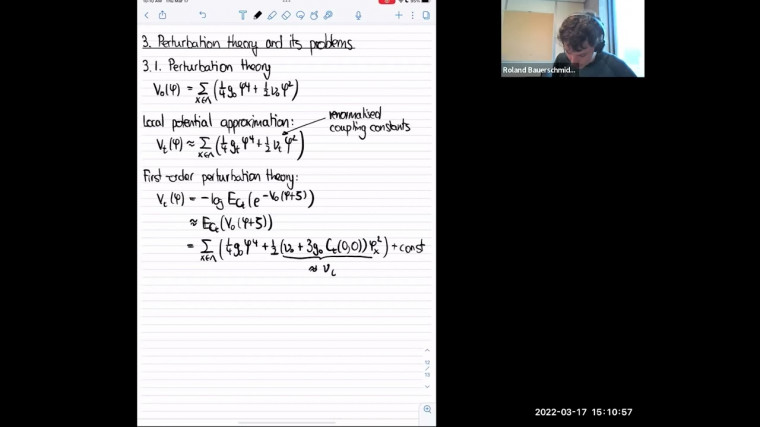 3. Perturbation theory and its problems
3.1. Perturbation theory
V₀(φ) = Σ_{x∈Λ} (¼ g₀ φ⁴ + ½ ν₀ φ²)
Local potential approximation:
renormalised
coupling constants
V_t(φ) ≈ Σ_{x∈Λ} (¼ g_t φ⁴ + ½ ν_t φ²)
First-order perturbation theory:
V_t(φ) = -log E_{C_t}(e^{-V₀(φ+ζ)})
≈ E_{C_t}(V₀(φ+ζ))
= Σ_{x∈Λ} (¼ g₀ φ⁴ + ½ (ν₀ + 3g₀ C_t(0,0)) φ_x²) + const
≈ ν_t
Roland Bauerschmid...
2022-03-17 15:10:57